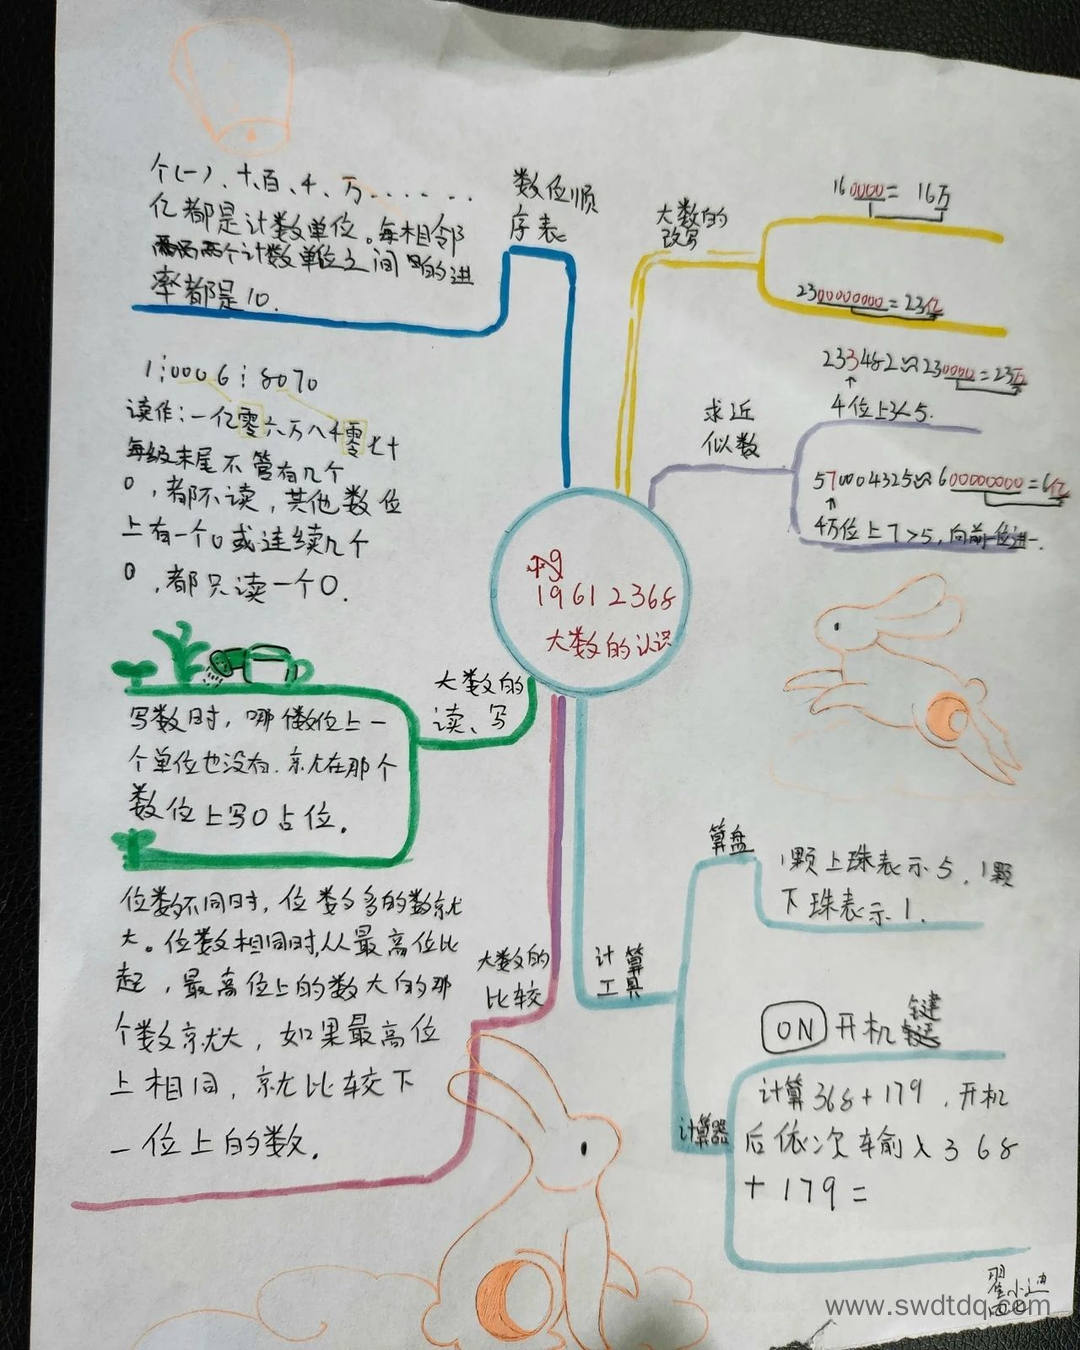 个(一)、十、百、千、万......
亿都是计数单位。每相邻
两个计数单位之间的进
率都是10.
数位顺
序表
大数的
改写
160000=16万
2300000000=23亿
1⋮0006⋮8070
读作:一亿零六万八千零七十
每级末尾不管有几个
0,都不读,其他数位
上有一个0或连续几个
0,都只读一个0.
求近
似数
233482≈230000=23万
4位上3<5.
570004325≈600000000=6亿
4万位上7>5,向前一位进一.
19612368
大数的认识
大数的
读、写
写数时,哪个数位上一
个单位也没有.就在那个
数位上写0占位.
位数不同时,位数多的数就
大。位数相同时,从最高位比
起,最高位上的数大的那
个数就大,如果最高位
上相同,就比较下
一位上的数.
大数的
比较
计算
工具
算盘
1颗上珠表示5.1颗
下珠表示1.
计算器
ON 开机键
计算368+179.开机
后依次输入368
+179=
www.swdtdq.com